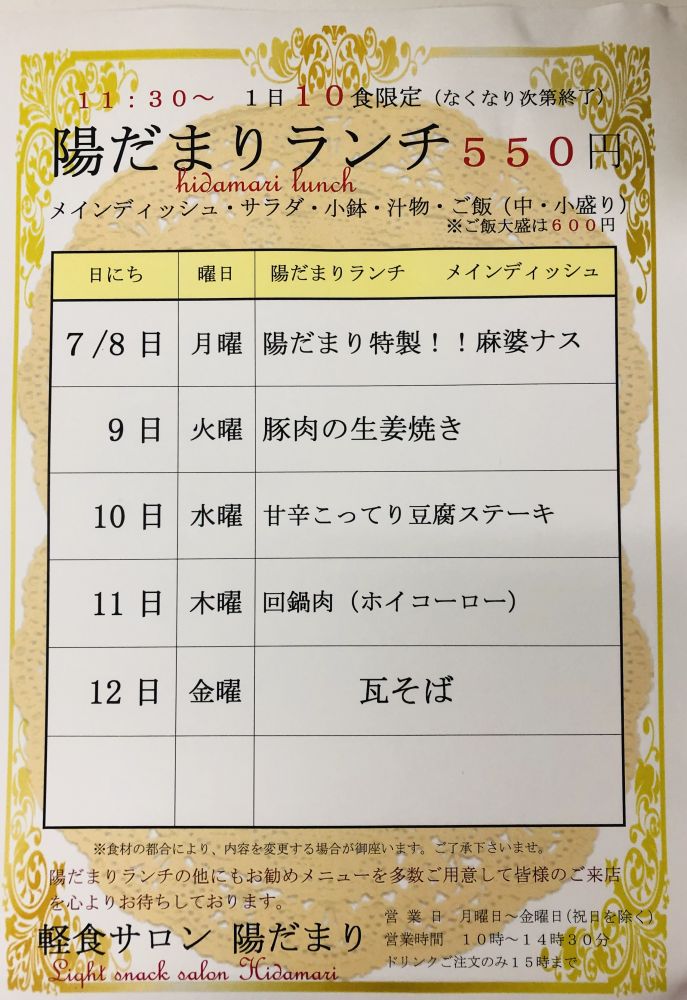 11：30～　1日10食限定（なくなり次第終了）
陽だまりランチ 550円
hidamari lunch
メインディッシュ・サラダ・小鉢・汁物・ご飯（中・小盛り）
※ご飯大盛は600円
日にち　曜日　陽だまりランチ　メインディッシュ
7/8日　月曜　陽だまり特製！！麻婆ナス
9日　火曜　豚肉の生姜焼き
10日　水曜　甘辛こってり豆腐ステーキ
11日　木曜　回鍋肉（ホイコーロー）
12日　金曜　瓦そば
※食材の都合により、内容を変更する場合が御座います。ご了承下さいませ。
陽だまりランチの他にもお勧めメニューを多数ご用意して皆様のご来店
を心よりお待ちしております。
軽食サロン 陽だまり
Light snack salon Hidamari
営業日　月曜日～金曜日(祝日を除く)
営業時間　10時～14時30分
ドリンクご注文のみ15時まで